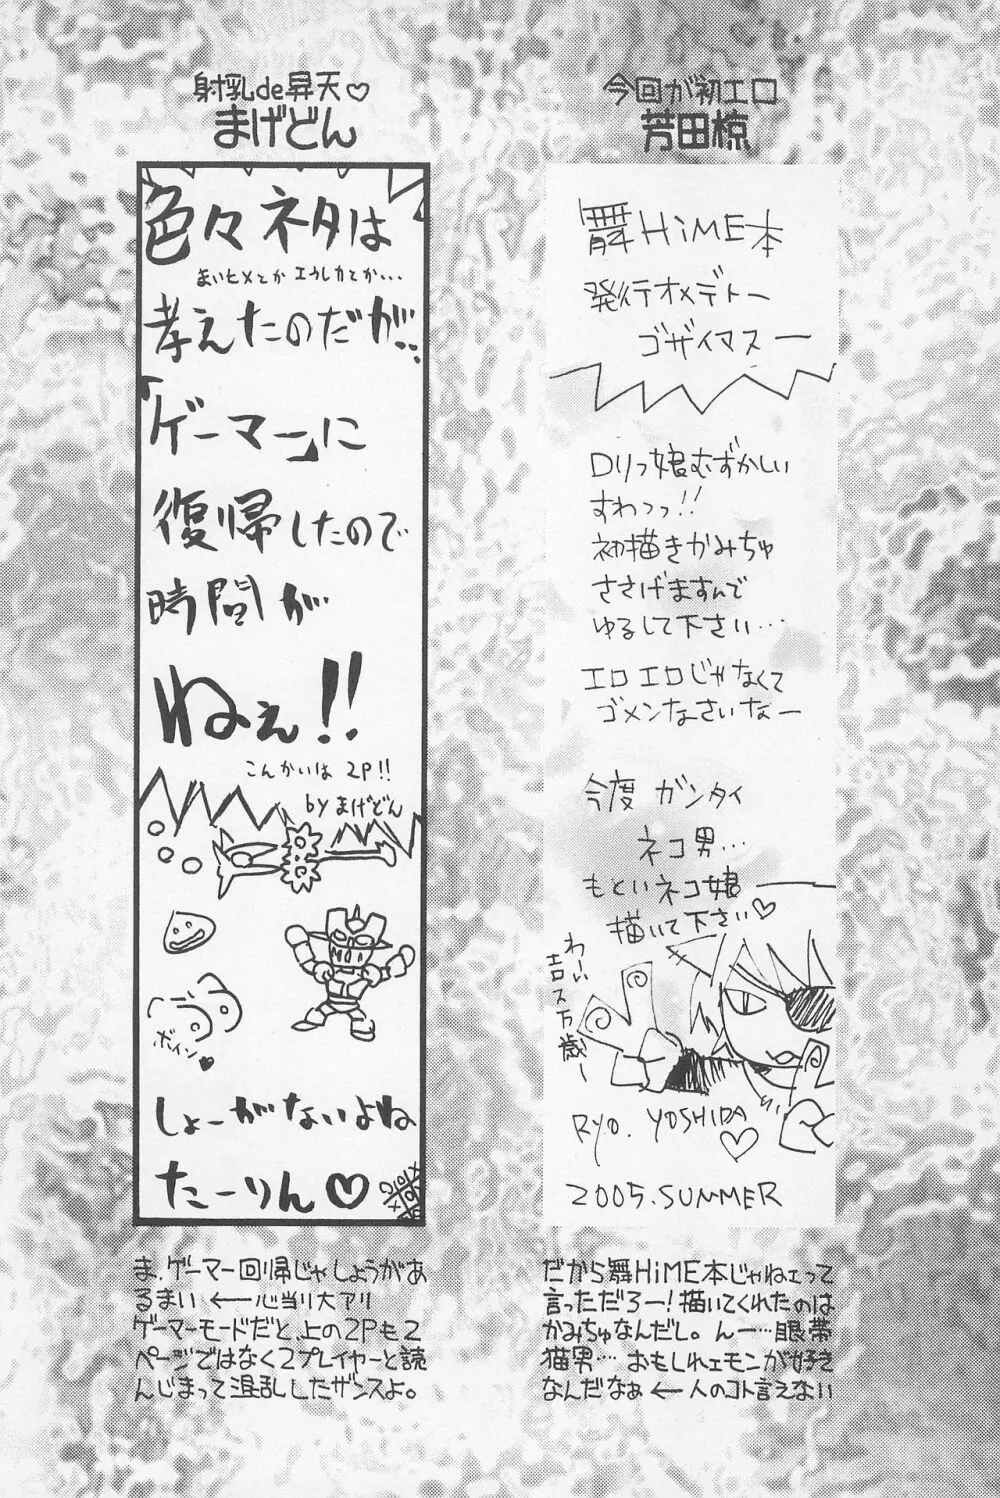 今回が初エロ
芳田椋
舞HiME本
発行オメデトー
ゴザイマスー
ロリっ娘むずかしい
すわっっ!!
初描きかみちゅ
ささげますんで
ゆるして下さい…
エロエロじゃなくて
ゴメンなさいなー
今度 ガンタイ
ネコ男…
もといネコ娘
描いて下さい♡
わーい
吉ス万歳ー
RYO. YOSHIDA
♡
2005.SUMMER
だから舞HiME本じゃねェって
言っただろー!描いてくれたのは
かみちゅなんだし。んー…眼帯
猫男… おもしれェモンが好き
なんだなぁ ← 人のコト言えない
射乳de昇天♡
まげどん
色々ネタは
まいヒメとか エウレカとか...
考えたのだが…
「ゲーマー」に
復帰したので
時間が
ねぇ!!
こんかいは 2P!!
by まげどん
ボイン♥
しょーがないよね
たーりん♡
ま、ゲーマー回帰じゃしょうがあ
るまい ← 心当り大アリ
ゲーマーモードだと、上の2Pも2
ページではなく2プレイヤーと読
んじまって混乱したザンスよ。